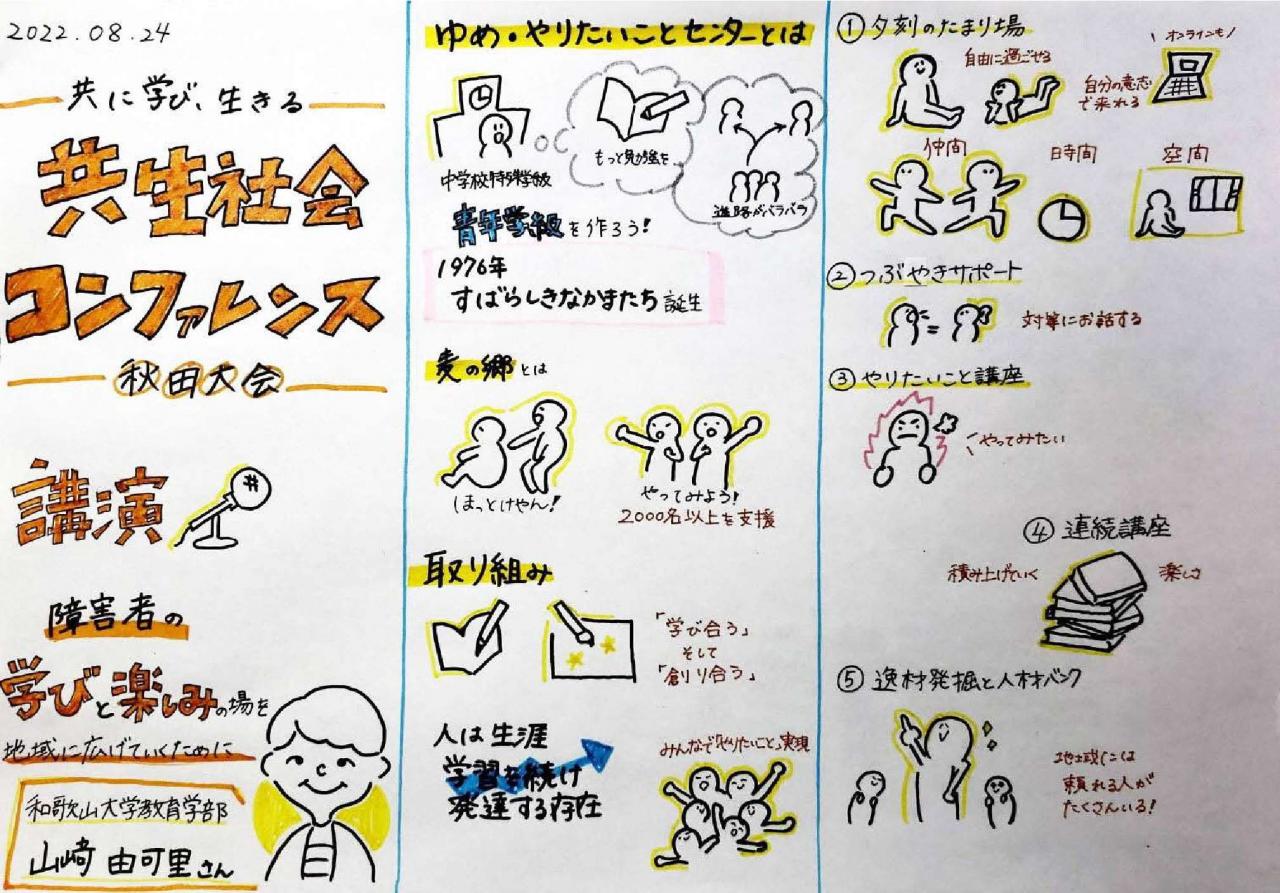 2022.08.24
共に学び、生きる
共生社会
コンファレンス
秋田大会
講演
障害者の
学びと楽しみの場を
地域に広げていくために
和歌山大学教育学部
山﨑 由可里さん
ゆめ・やりたいことセンターとは
中学校特殊学級
もっと勉強を
進路がバラバラ
青年学級を作ろう!
1976年
すばらしきなかまたち誕生
麦の郷とは
ほっとけやん!
やってみよう!
2000名以上を支援
取り組み
「学び合う」
そして
「創り合う」
人は生涯
学習を続け
発達する存在
みんなで「やりたいこと」実現
①夕刻のたまり場
自由に過ごせる
自分の意志
で来れる
\ オンラインも /
仲間
時間
空間
②つぶやきサポート
対等にお話する
③やりたいこと講座
やってみたい
④連続講座
積み上げていく
楽しさ
⑤逸材発掘と人材バンク
地域には
頼れる人が
たくさんいる!